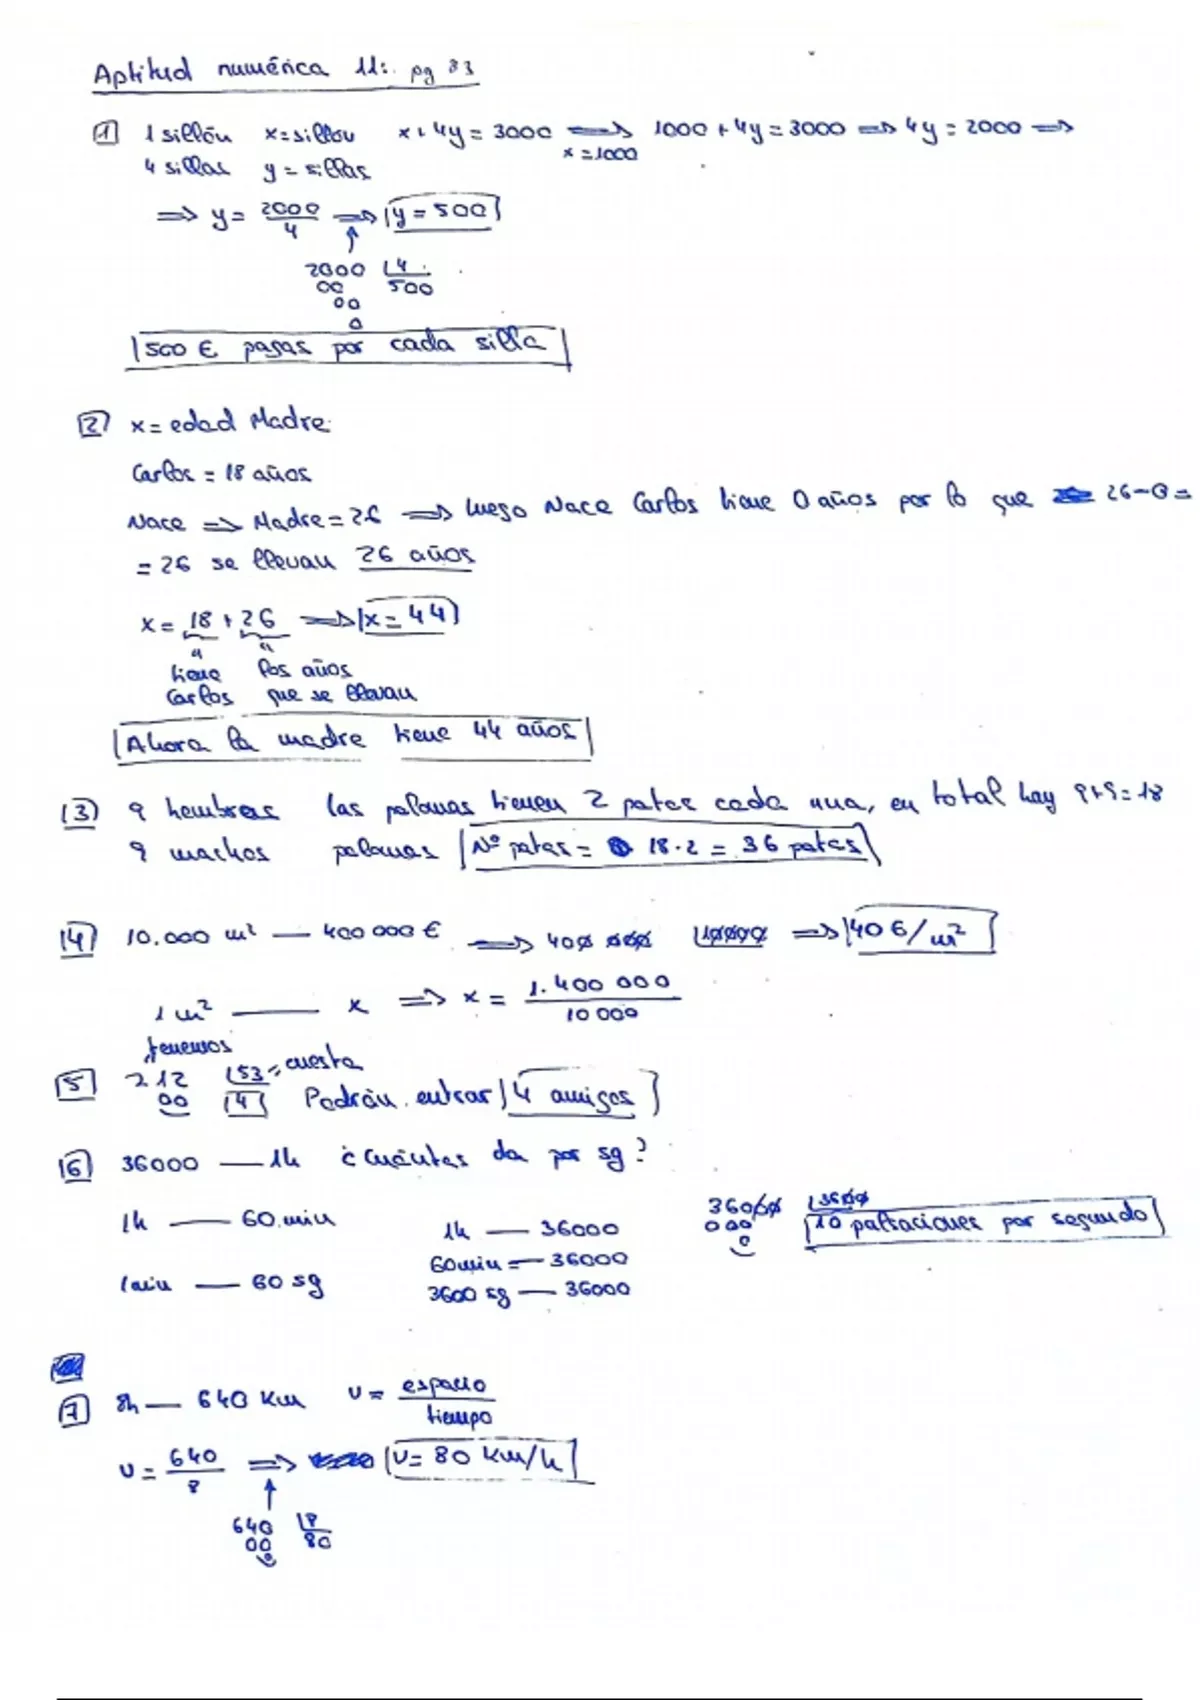 Aptitud numérica 11: pg 83
1 1 sillón x=sillón x+4y=3000 ⟹ 1000+4y=3000 ⟹ 4y=2000 ⟹
x=1000
4 sillas y=sillas
⟹ y= 2000/4 ⟹ y=500
2000 4
00 500
00
0
500 € pagas por cada silla
2 x= edad Madre
Carlos = 18 años
Nace ⟹ Madre=26 ⟹ luego Nace Carlos tiene 0 años por lo que 26-0=
= 26 se llevan 26 años
x= 18+26 ⟹ x=44
tiene los años
Carlos que se llevan
Ahora la madre tiene 44 años
3 9 hembras las palomas tienen 2 patas cada una, en total hay 9+9=18
9 machos palomas Nº patas= 18·2 = 36 patas
4 10.000 m² — 400 000 € ⟹ 400 000 10000 ⟹ 40 €/m²
1 m² — x ⟹ x= 1.400 000 / 10 000
tenemos
5 212 53 = cuesta
00 4 Podrán entrar 4 amigos
6 36000 — 1h ¿Cuántas da por sg?
1h — 60 min 1h — 36000 36000 3600
60min — 36000 000 10 palpitaciones por segundo
0
1min — 60 sg 3600 sg — 36000
7 8h — 640 Km v= espacio/tiempo
v= 640/8 ⟹ v= 80 Km/h
640 8
00 80
0